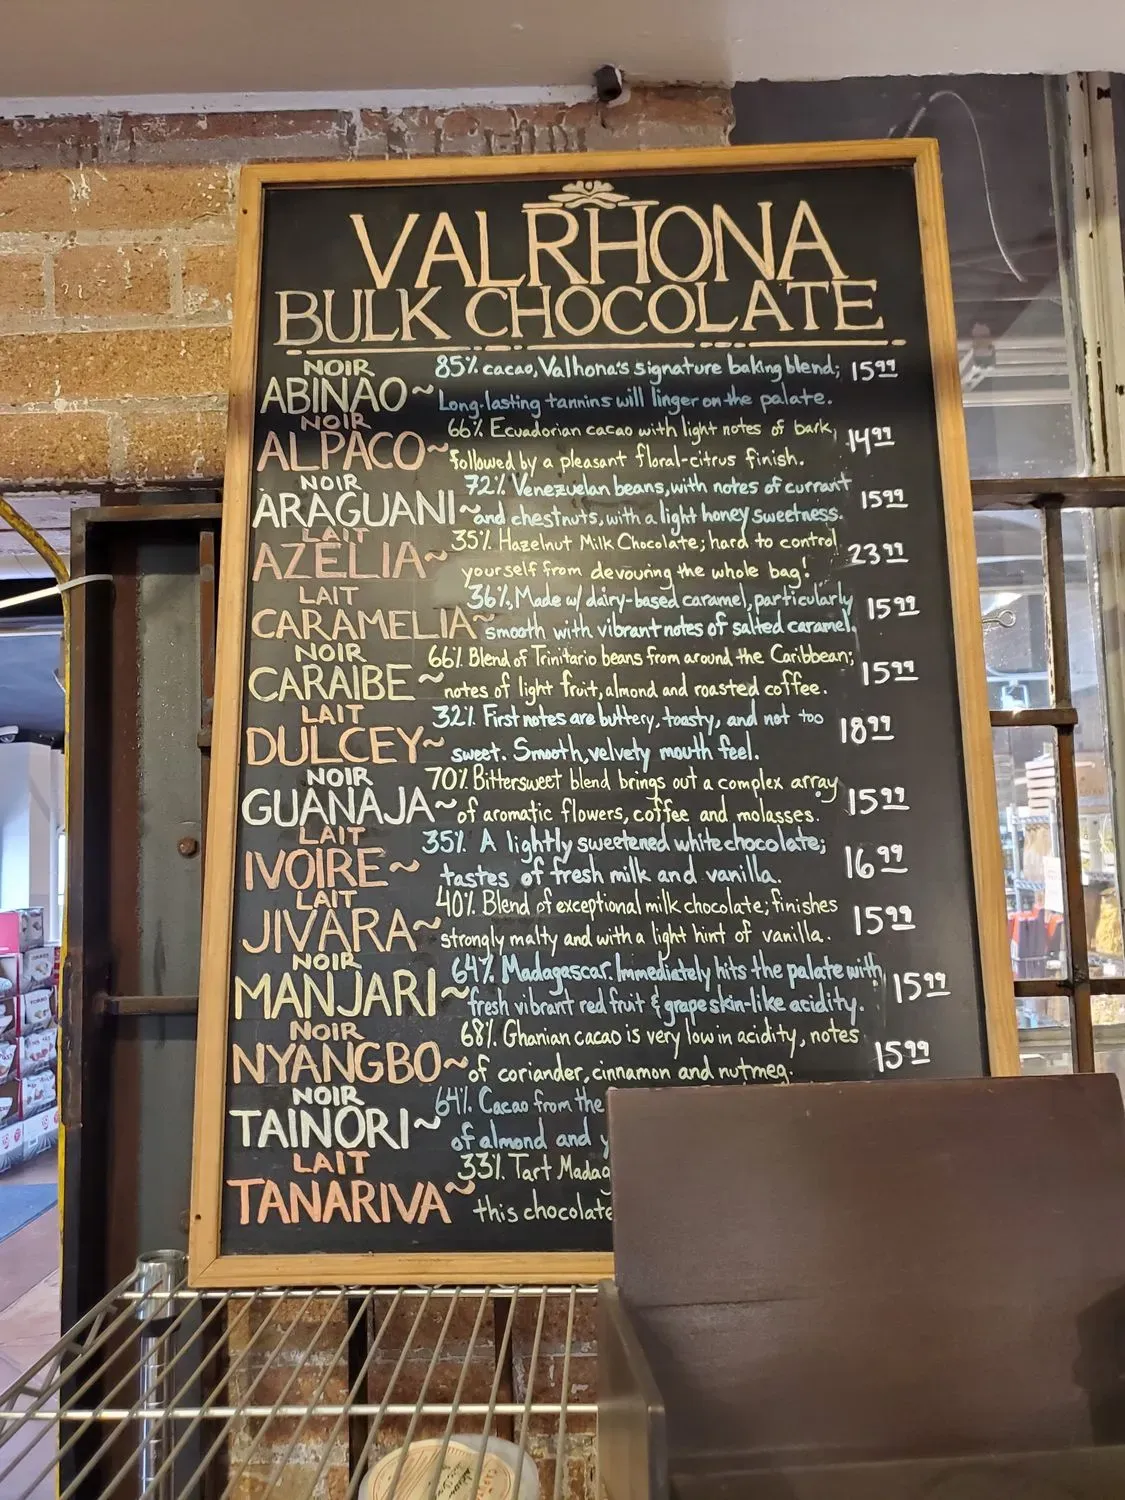 VALRHONA
BULK CHOCOLATE
NOIR
ABINAO~ 85% cacao, Valhona's signature baking blend; 15 99
Long-lasting tannins will linger on the palate.
NOIR
ALPACO~ 66% Ecuadorian cacao with light notes of bark, 14 99
followed by a pleasant floral-citrus finish.
NOIR
ARAGUANI~ 72% Venezuelan beans, with notes of currant 15 99
and chestnuts, with a light honey sweetness.
LAIT
AZELIA~ 35% Hazelnut Milk Chocolate; hard to control 23 99
yourself from devouring the whole bag!
LAIT
CARAMELIA~ 36%, Made w/ dairy-based caramel, particularly 15 99
smooth with vibrant notes of salted caramel.
NOIR
CARAIBE~ 66% Blend of Trinitario beans from around the Caribbean; 15 99
notes of light fruit, almond and roasted coffee.
LAIT
DULCEY~ 32% First notes are buttery, toasty, and not too 18 99
sweet. Smooth, velvety mouth feel.
NOIR
GUANAJA~ 70% Bittersweet blend brings out a complex array 15 99
of aromatic flowers, coffee and molasses.
LAIT
IVOIRE~ 35% A lightly sweetened white chocolate; 16 99
tastes of fresh milk and vanilla.
LAIT
JIVARA~ 40% Blend of exceptional milk chocolate; finishes 15 99
strongly malty and with a light hint of vanilla.
NOIR
MANJARI~ 64% Madagascar. Immediately hits the palate with 15 99
fresh vibrant red fruit & grapeskin-like acidity.
NOIR
NYANGBO~ 68% Ghanian cacao is very low in acidity, notes 15 99
of coriander, cinnamon and nutmeg.
NOIR
TAINORI~ 64% Cacao from the
of almond and y
LAIT
TANARIVA~ 33% Tart Madag
this chocolate